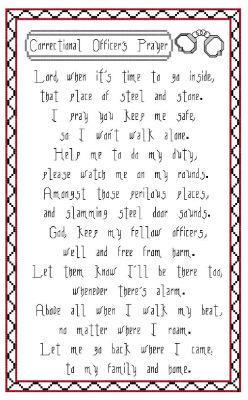 Correctional Officer's Prayer
Lord, when it's time to go inside,
that place of steel and stone.
I pray you keep me safe,
so I won't walk alone.
Help me to do my duty,
please watch me on my rounds.
Amongst those perilous places,
and slamming steel door sounds.
God, keep my fellow officers,
well and free from harm.
Let them know I'll be there too,
whenever there's alarm.
Above all when I walk my beat,
no matter where I roam.
Let me go back where I came,
to my family and home.